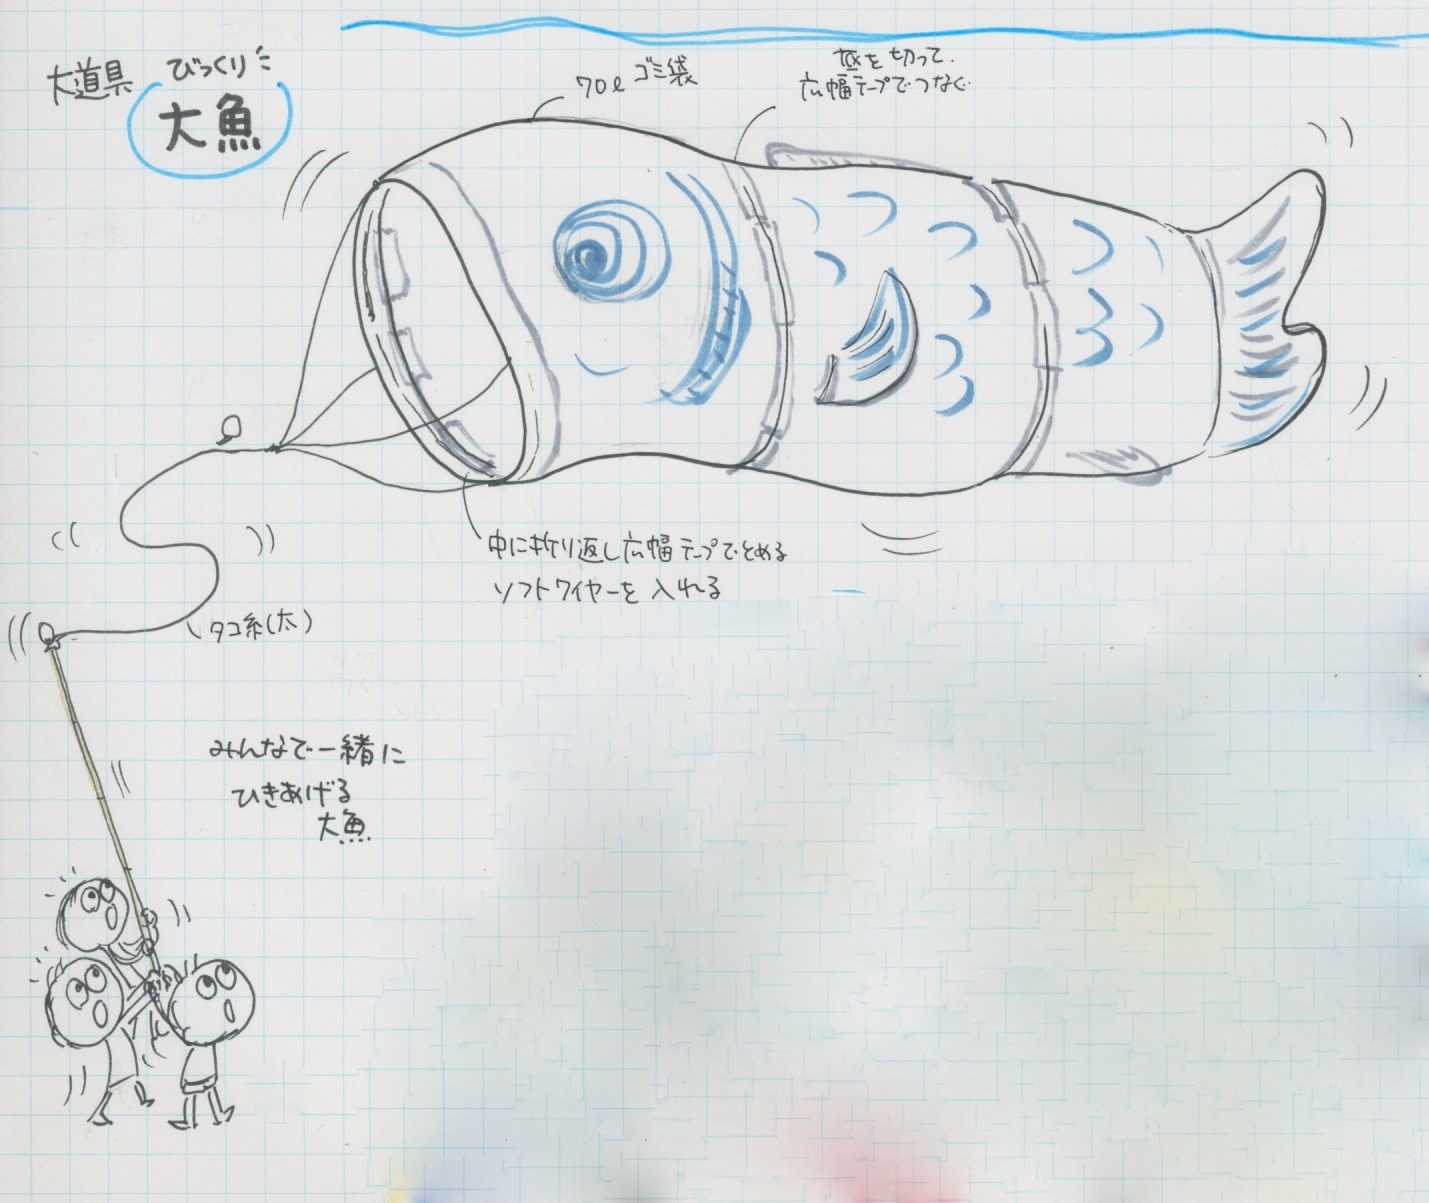 大道具
びっくり
大魚
70ℓ ゴミ袋
底を切って
広幅テープでつなぐ
中に折り返し広幅テープでとめる
ソフトワイヤーを入れる
タコ糸(太)
みんなで一緒に
ひきあげる
大魚